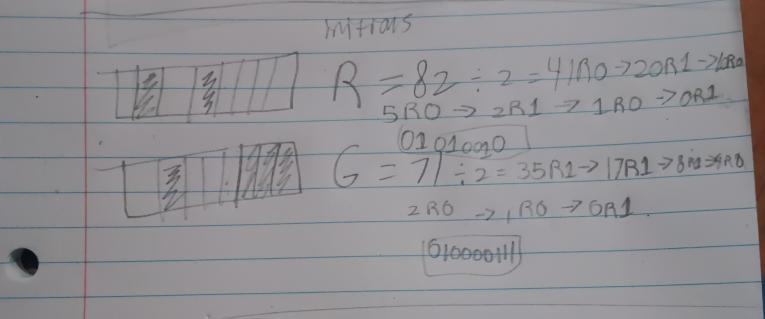 initials
R = 82 ÷ 2 = 41R0 → 20R1 → 10R0
5R0 → 2R1 → 1R0 → 0R1
01010010
G = 71 ÷ 2 = 35R1 → 17R1 → 8R1 → 4R0
2R0 → 1R0 → 0R1.
010000111